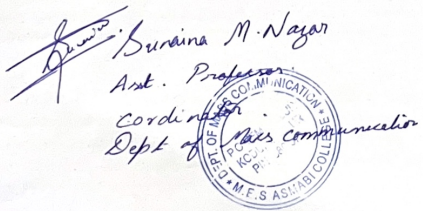 Sunaina M. Nazar
Asst. Professor.
cordinator.
Dept of Mass communication
DEPT. OF MASS COMMUNICATION * M.E.S ASMABI COLLEGE *